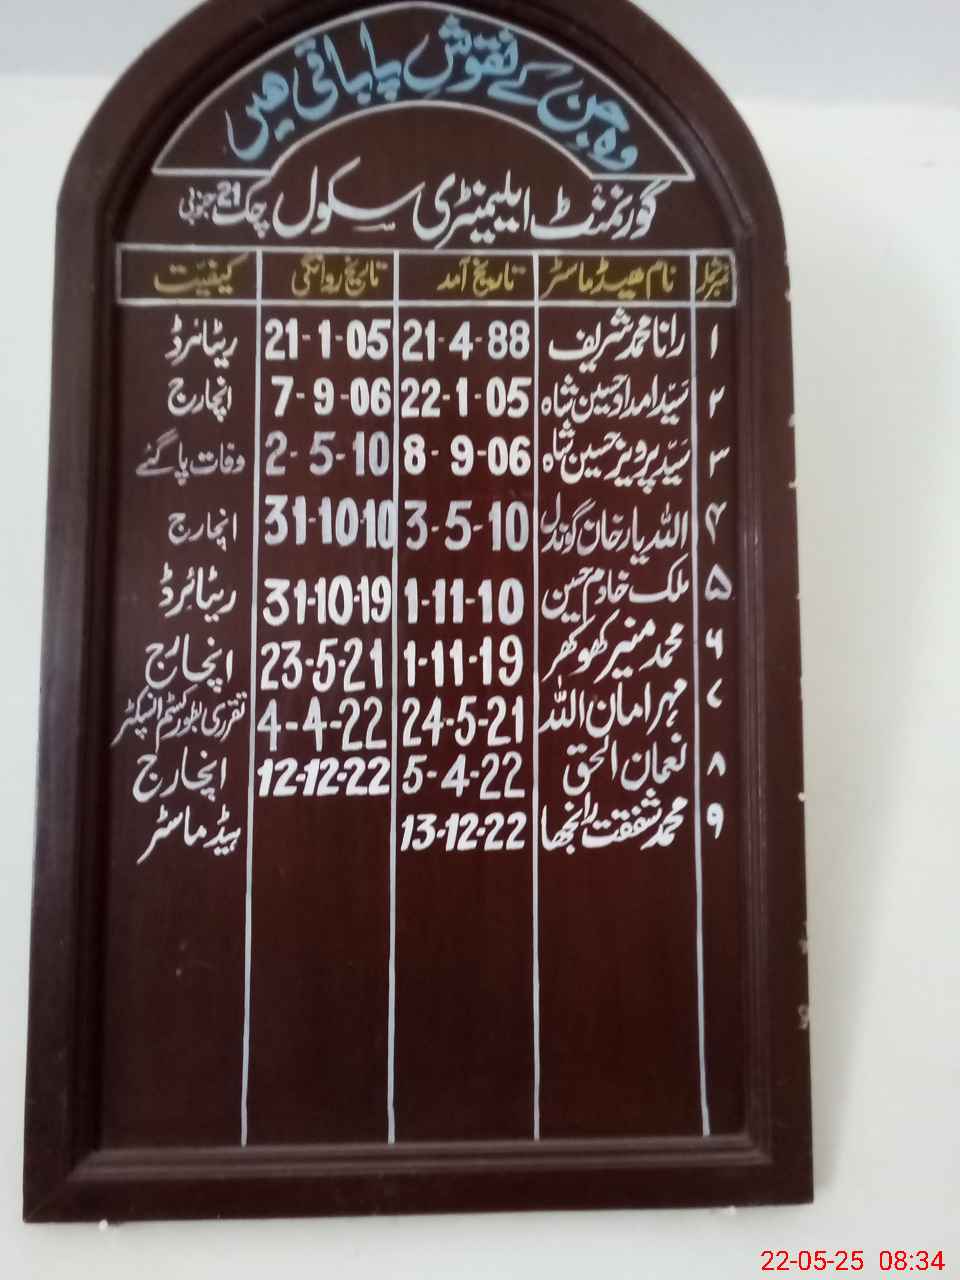 وہ جن کے نقوش پا باقی ہیں
گورنمنٹ ایلیمنٹری سکول چک 21 جنوبی
نمبر شمار نام ھیڈ ماسٹر تاریخ آمد تاریخ روانگی کیفیّت
۱ رانا محمد شریف 21-4-88 21-1-05 ریٹائرڈ
۲ سیّد امداد حسین شاہ 22-1-05 7-9-06 انچارج
۳ سیّد پرویز حسین شاہ 8-9-06 2-5-10 وفات پا گئے
۴ اللہ یار خان گوندل 3-5-10 31-10-10 انچارج
۵ ملک خادم حسین 1-11-10 31-10-19 ریٹائرڈ
۶ محمد منیر کھوکھر 1-11-19 23-5-21 انچارج
۷ مہر امان اللہ 24-5-21 4-4-22 تقرری بطور کسٹم انسپکٹر
۸ نعمان الحق 5-4-22 12-12-22 انچارج
۹ محمد شفقت رانجھا 13-12-22 ہیڈ ماسٹر
22-05-25 08:34